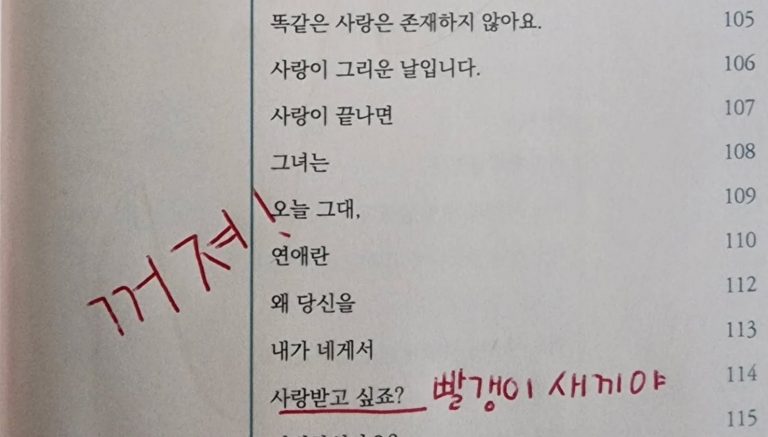 똑같은 사랑은 존재하지 않아요. 105
사랑이 그리운 날입니다. 106
사랑이 끝나면 107
그녀는 108
꺼져! 오늘 그대, 109
연애란 110
왜 당신을 112
내가 네게서 113
사랑받고 싶죠? 빨갱이 새끼야 114
115